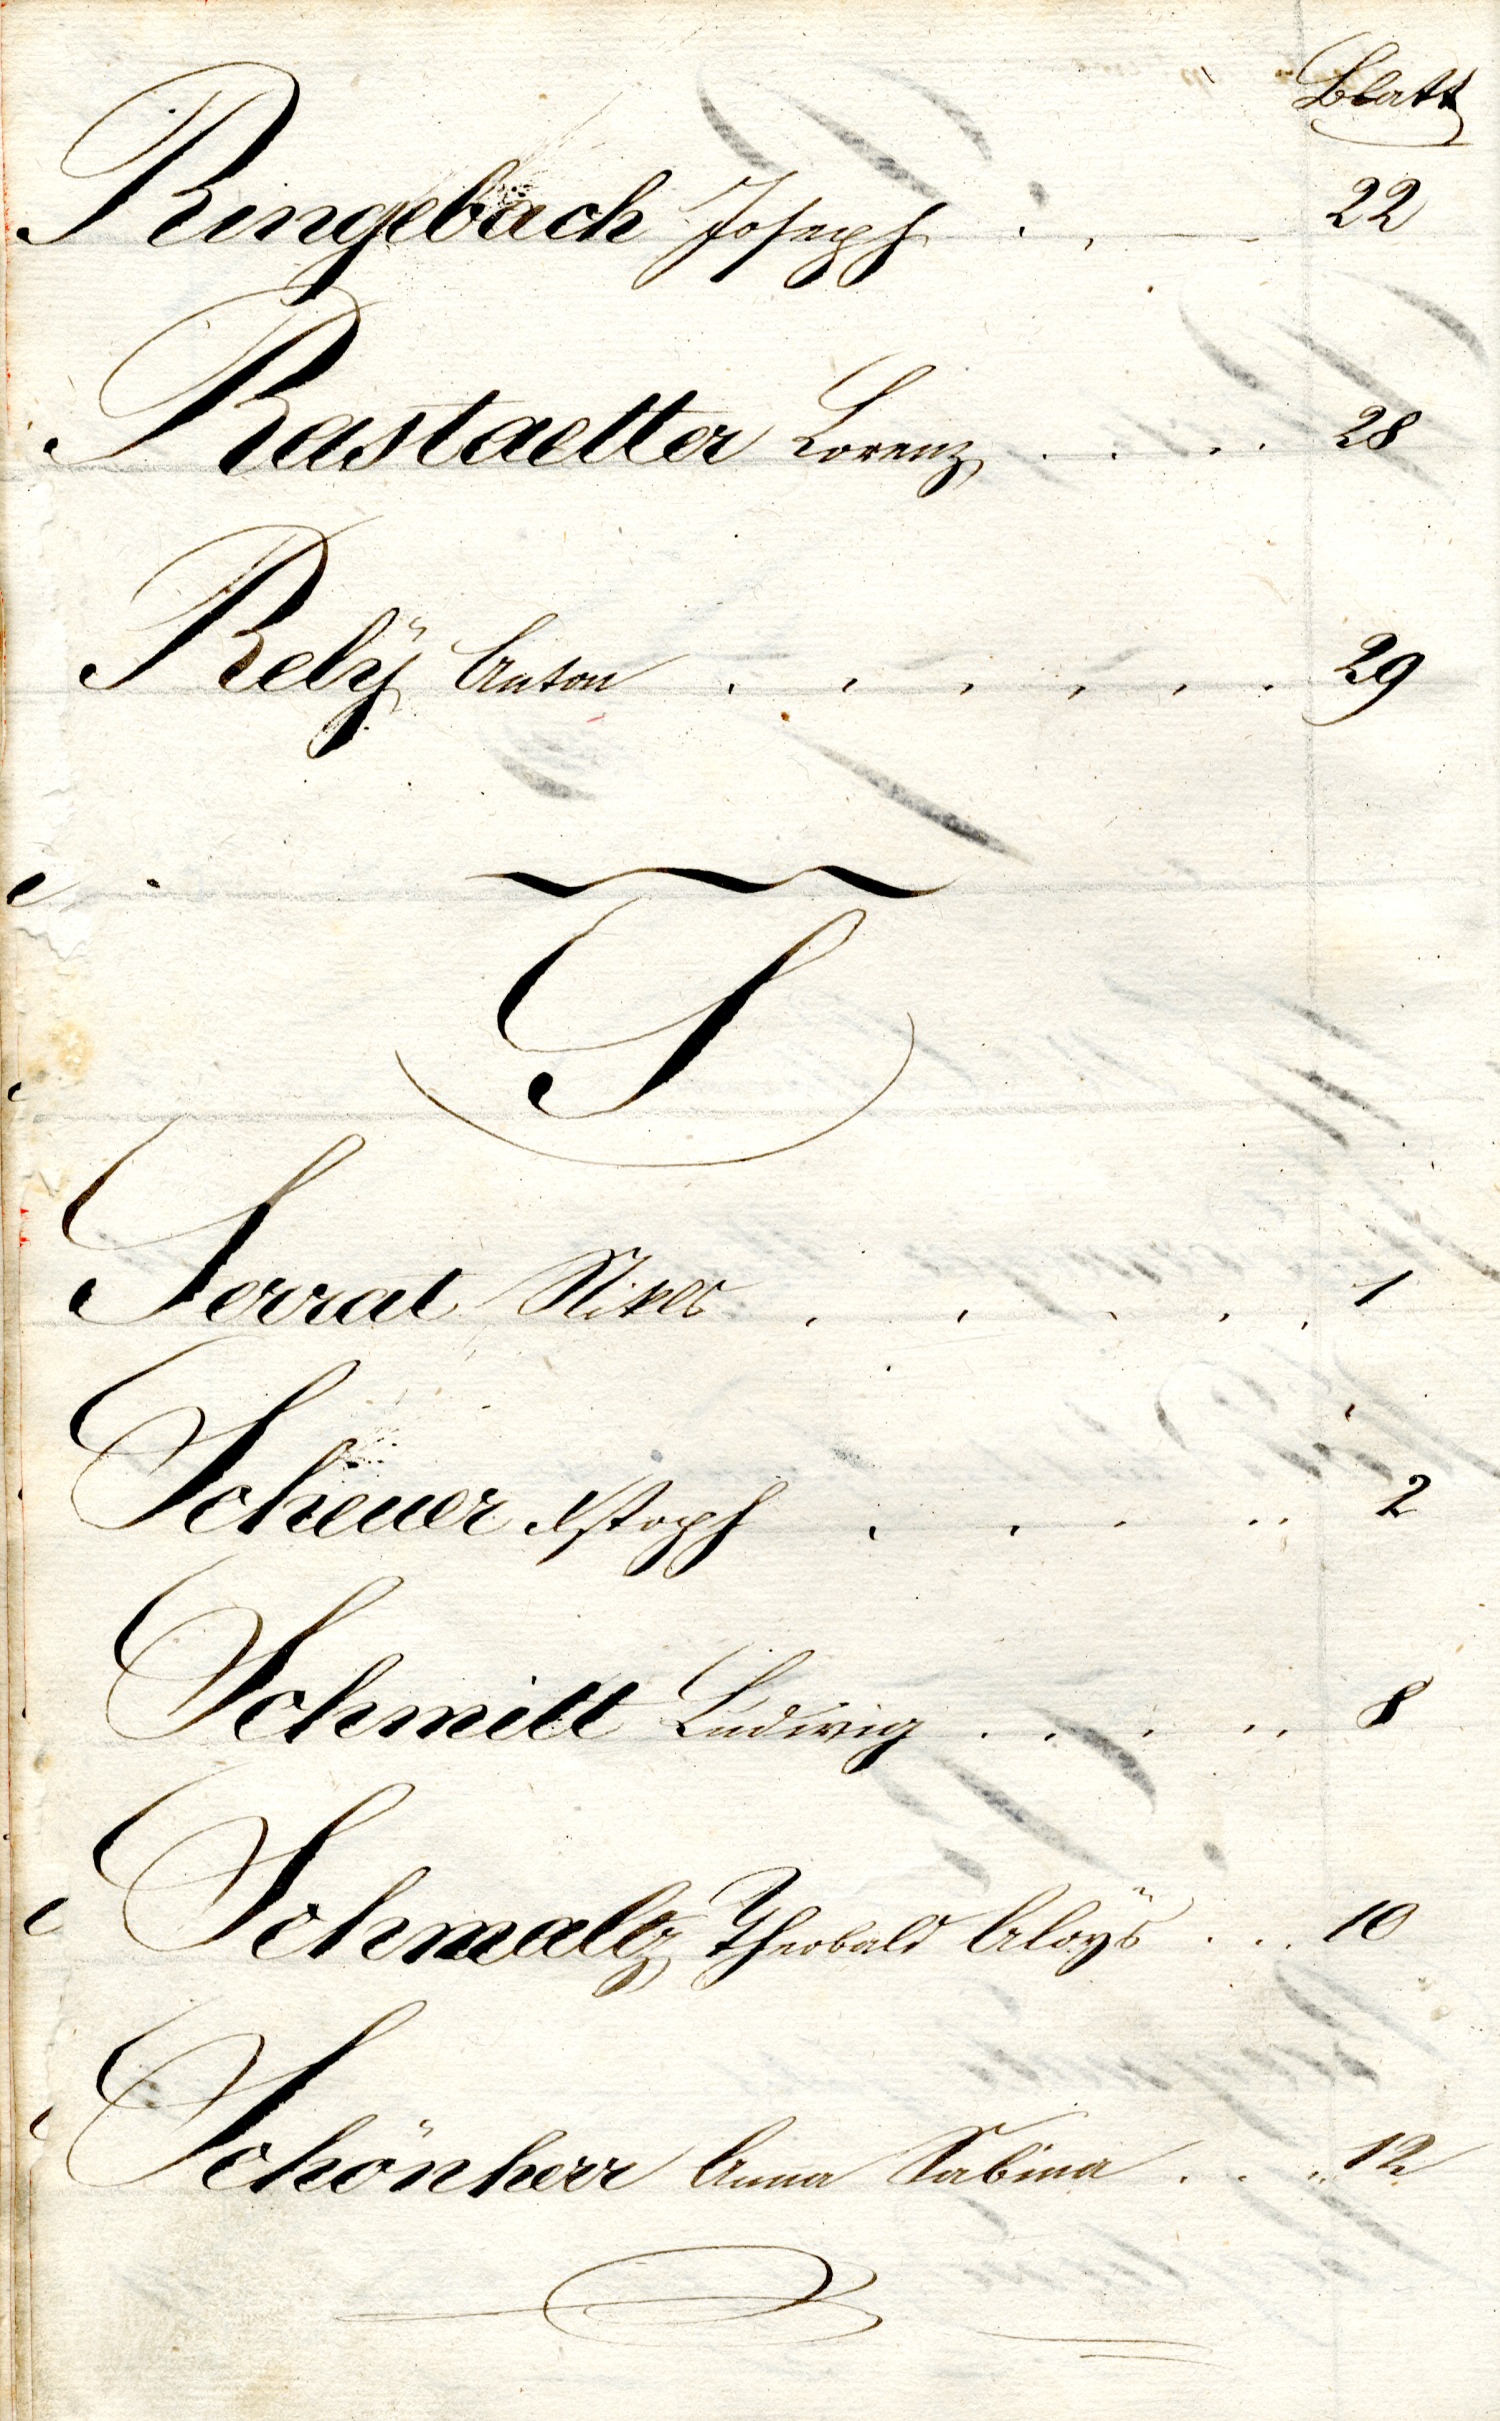 Blatt
Ringebach Joseph . . 22
Rastaetter Lorenz . . . . 28
Rely̆ Anton . . . . . . 29
S
Serrat Niklas . . . . . 1
Scheuer Xstoph . . . . . 2
Schmitt Ludwig . . . . . 8
Schmaltz Theobald Aloÿs . . . 10
Schönherr Anna Sabina . . . 12